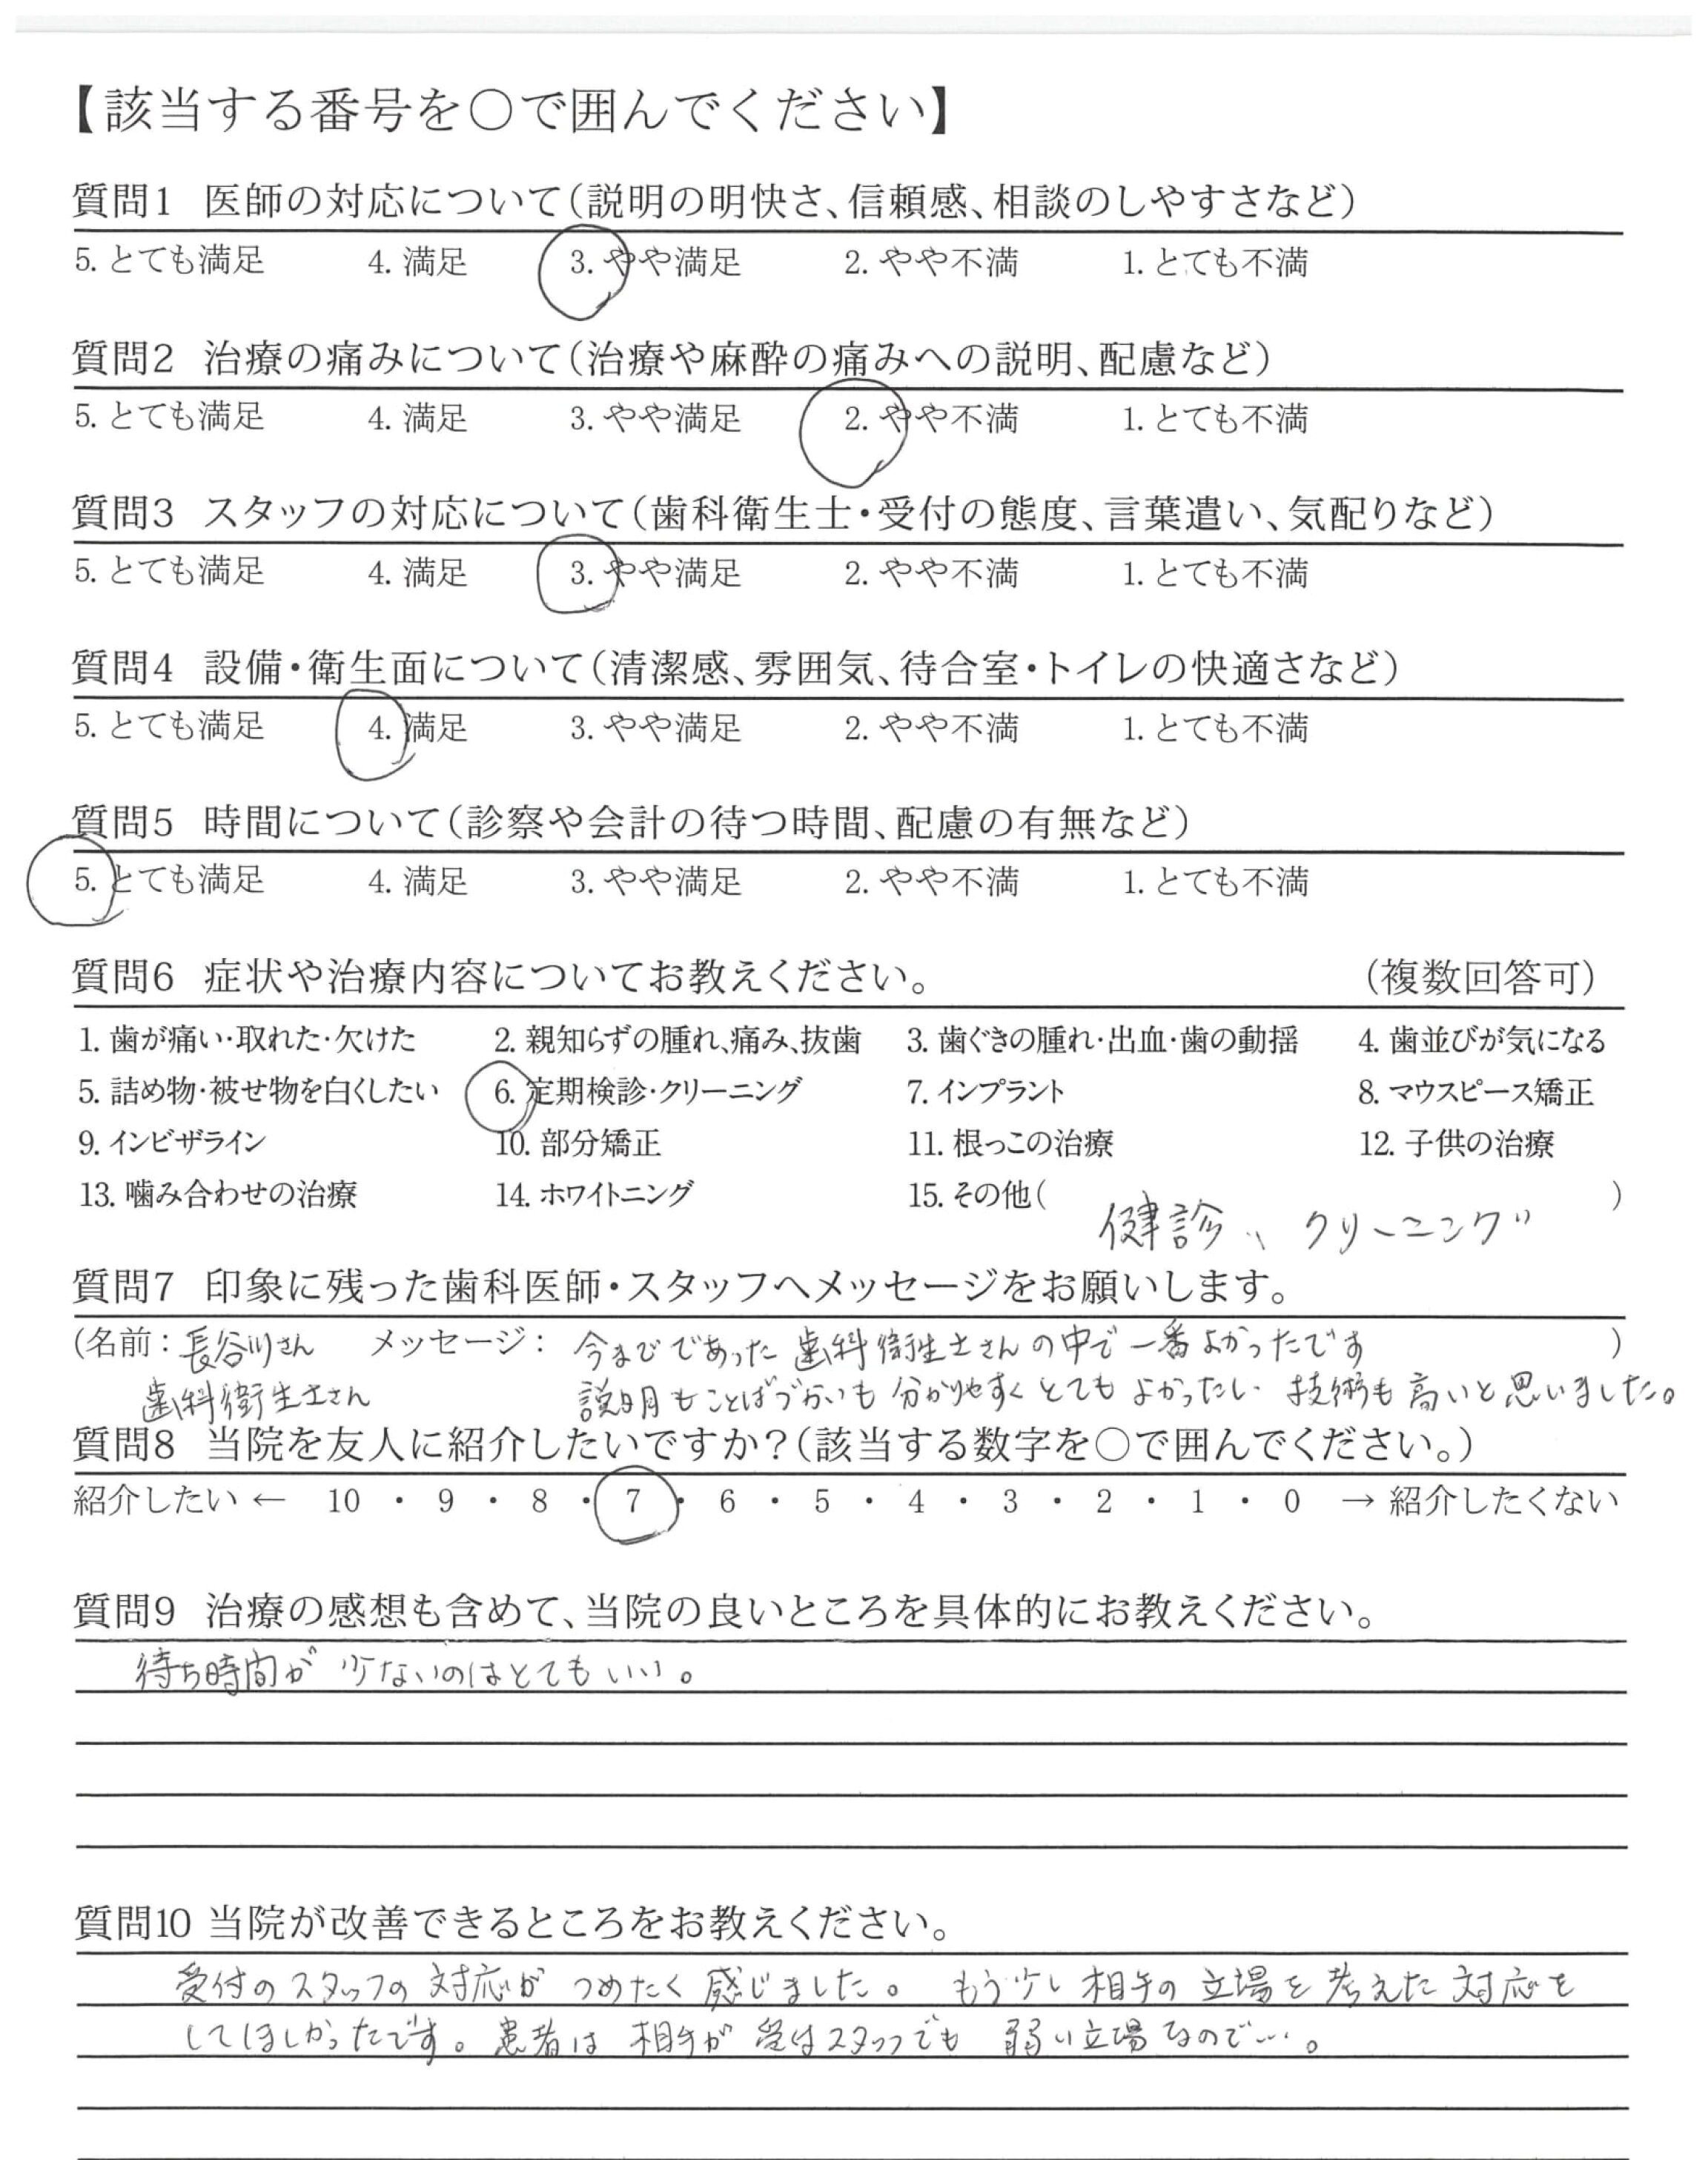 【該当する番号を○で囲んでください】
質問1 医師の対応について(説明の明快さ、信頼感、相談のしやすさなど)
5. とても満足 4. 満足 3. やや満足 2. やや不満 1. とても不満
質問2 治療の痛みについて(治療や麻酔の痛みへの説明、配慮など)
5. とても満足 4. 満足 3. やや満足 2. やや不満 1. とても不満
質問3 スタッフの対応について(歯科衛生士・受付の態度、言葉遣い、気配りなど)
5. とても満足 4. 満足 3. やや満足 2. やや不満 1. とても不満
質問4 設備・衛生面について(清潔感、雰囲気、待合室・トイレの快適さなど)
5. とても満足 4. 満足 3. やや満足 2. やや不満 1. とても不満
質問5 時間について(診察や会計の待つ時間、配慮の有無など)
5. とても満足 4. 満足 3. やや満足 2. やや不満 1. とても不満
質問6 症状や治療内容についてお教えください。 (複数回答可)
1. 歯が痛い・取れた・欠けた 2. 親知らずの腫れ、痛み、抜歯 3. 歯ぐきの腫れ・出血・歯の動揺 4. 歯並びが気になる
5. 詰め物・被せ物を白くしたい 6. 定期検診・クリーニング 7. インプラント 8. マウスピース矯正
9. インビザライン 10. 部分矯正 11. 根っこの治療 12. 子供の治療
13. 噛み合わせの治療 14. ホワイトニング 15. その他( )
健診、クリーニング
質問7 印象に残った歯科医師・スタッフへメッセージをお願いします。
(名前: 長谷川さん メッセージ: 今まででであった歯科衛生士さんの中で一番よかったです )
歯科衛生士さん 説明もことばづかいも分かりやすくとてもよかったし 技術も高いと思いました。
質問8 当院を友人に紹介したいですか?(該当する数字を○で囲んでください。)
紹介したい ← 10 ・ 9 ・ 8 ・ 7 ・ 6 ・ 5 ・ 4 ・ 3 ・ 2 ・ 1 ・ 0 → 紹介したくない
質問9 治療の感想も含めて、当院の良いところを具体的にお教えください。
待ち時間が少ないのはとてもいい。
質問10 当院が改善できるところをお教えください。
受付のスタッフの対応がつめたく感じました。もう少し相手の立場を考えた対応を
してほしかったです。患者は相手が受付スタッフでも弱い立場なので…。